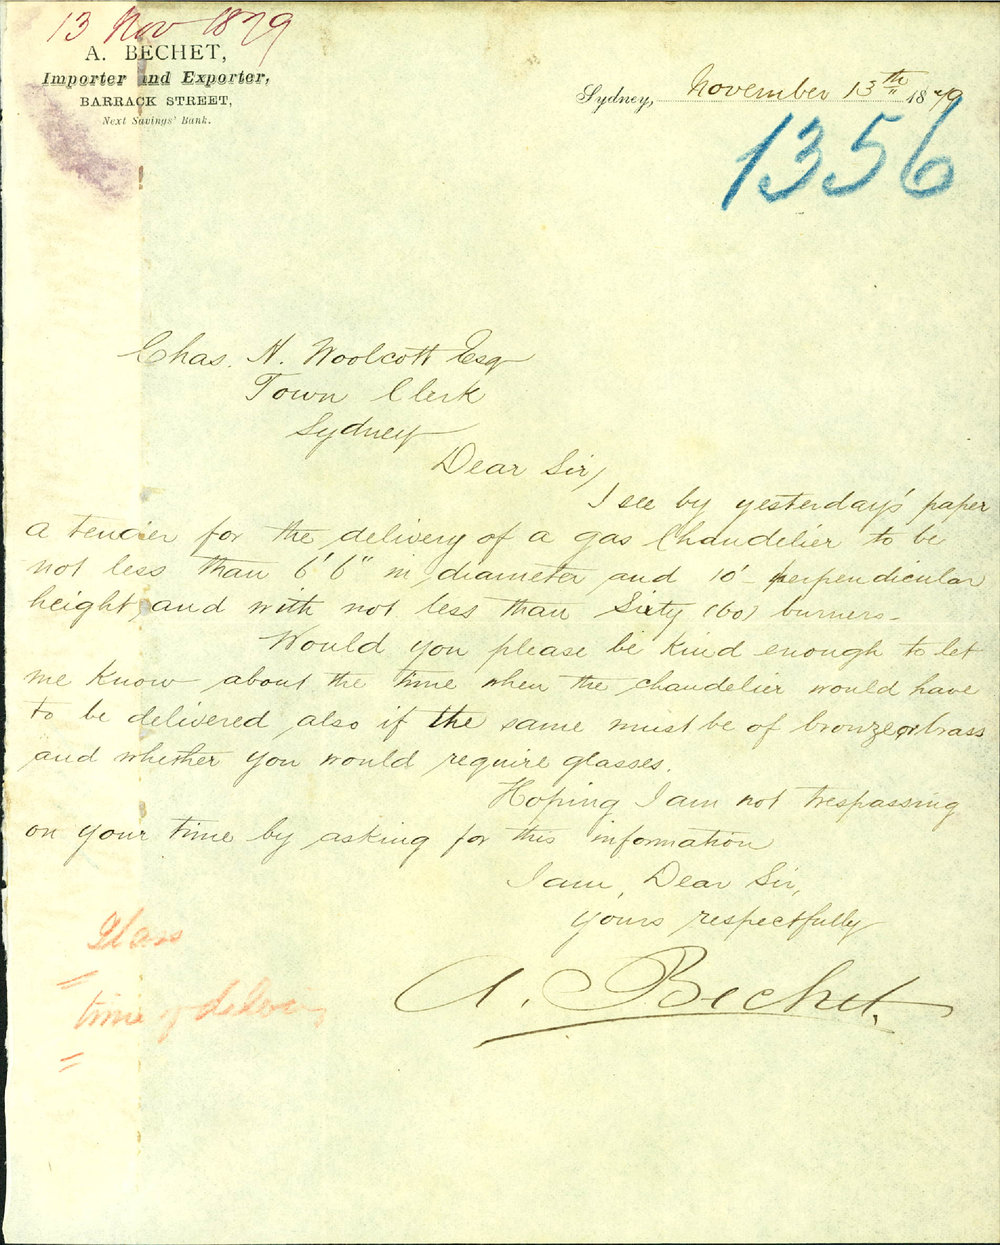 13 Nov 1879
A. BECHET,
Importer and Exporter,
BARRACK STREET,
Next Savings' Bank.
Sydney, November 13th 1879
1356
Chas. H. Woolcott Esq
Town Clerk
Sydney
Dear Sir,
I see by yesterday's paper
a tender for the delivery of a gas Chandelier to be
not less than 6' 6" in diameter and 10' perpendicular
height, and with not less than Sixty (60) burners.
Would you please be kind enough to let
me know about the time when the chandelier would have
to be delivered, also if the same must be of bronze or brass
and whether you would require glasses.
Hoping I am not trespassing
on your time by asking for this information
I am, Dear Sir,
yours respectfully
A. Bechet.
Glass
time of delivery